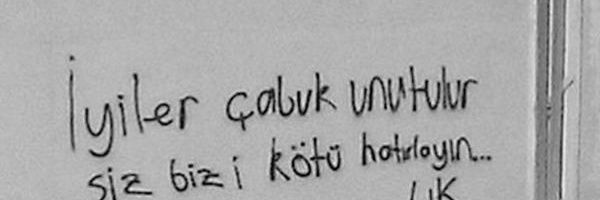 İyiler çabuk unutulur
siz bizi kötü hatırlayın...